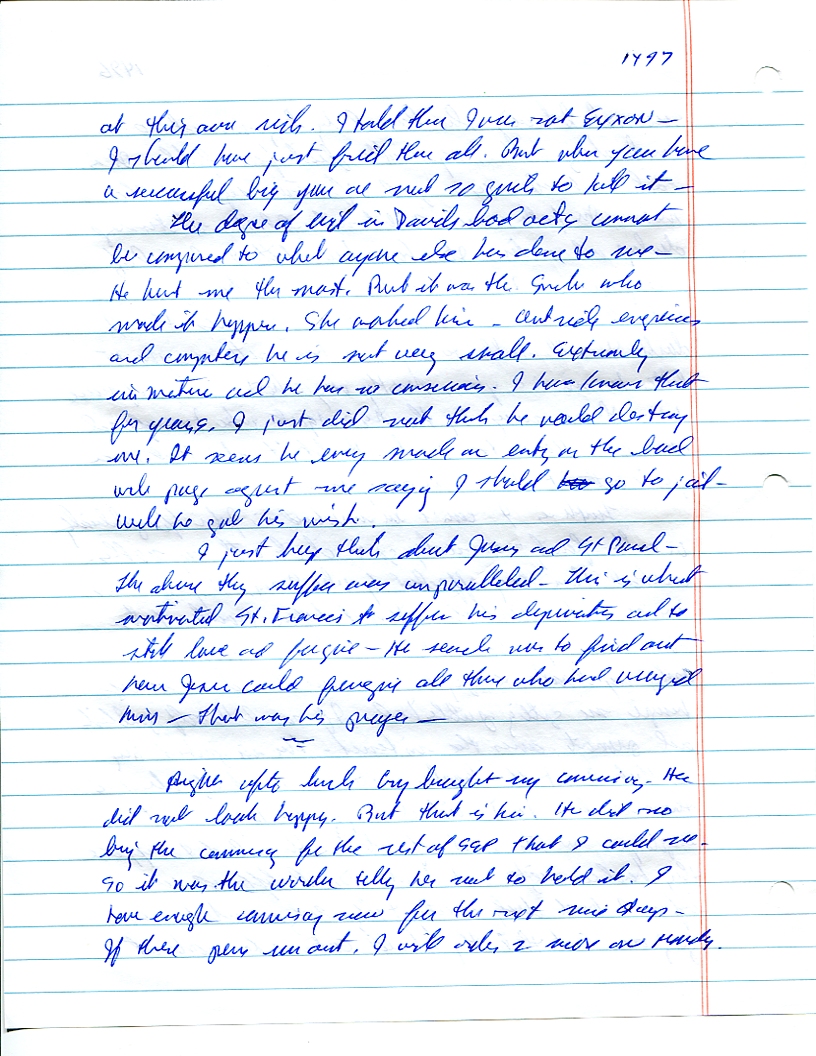 1497
at this own risk. I told them I was not Exxon –
I should have just fired them all. But when you have
a successful biz you are not so quick to kill it –
The degree of evil in Davids bad acts cannot
be compared to what anyone else has done to me –
He hurt me the most. But it was the who
made it happen. She worked him – outside engines
and computers he is not very small. Extremely
immature and he has no conscience. I have known that
for years. I just did not think he would destroy
me. It seems he even made an entry on the bad
web page against me saying I should go to jail –
well he got his wish.
I just keep think about Jesus and St Paul –
the abuse they suffer was unparalleled – this is what
motivated St. Francis to suffer his deprivates and to
still love and forgive – He search was to find out
how Jesus could forgive all those who had wronged
Him – that was his prayer –
Right after lunch brought my commissary. He
did not look happy. But that is him. He did no
bring the commissary for the rest of that I could see.
So it was the worker telly her not to hold it. I
have enough commissary now for the next nine days –
If these pens run out, I will order 2 more on Monday.